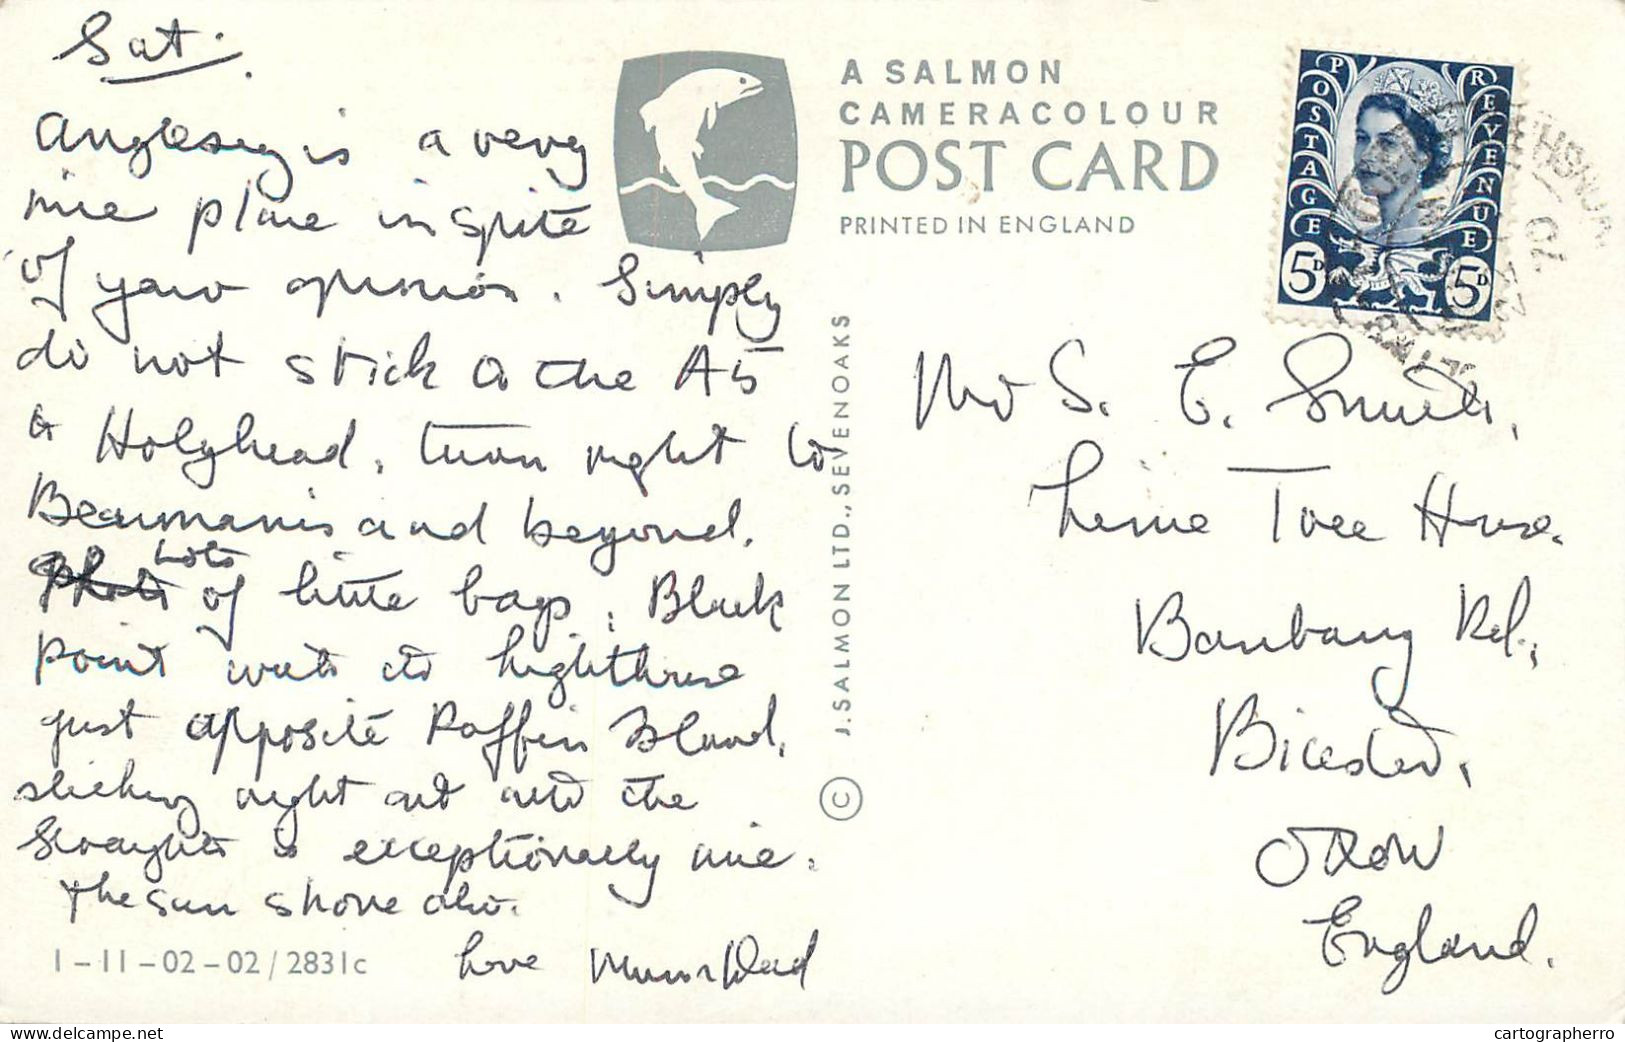 Sat.
Anglesey is a very
nice place in spite
of your opinion. Simply
do not stick to the A5
to Holyhead, turn right to
Beaumaris and beyond.
lots
of little bays, Black
Point with its lighthouse
just opposite Puffin Island,
sticking right out into the
Straights is exceptionally nice.
The sun shone also.
Love Mum & Dad
1-11-02-02/2831c
A SALMON
CAMERACOLOUR
POST CARD
PRINTED IN ENGLAND
© J. SALMON LTD., SEVENOAKS
POSTAGE REVENUE
5D 5D
Mr S. E. Smith,
Lime Tree House.
Banbury Rd.,
Bicester,
OXON
England.
cartographerro